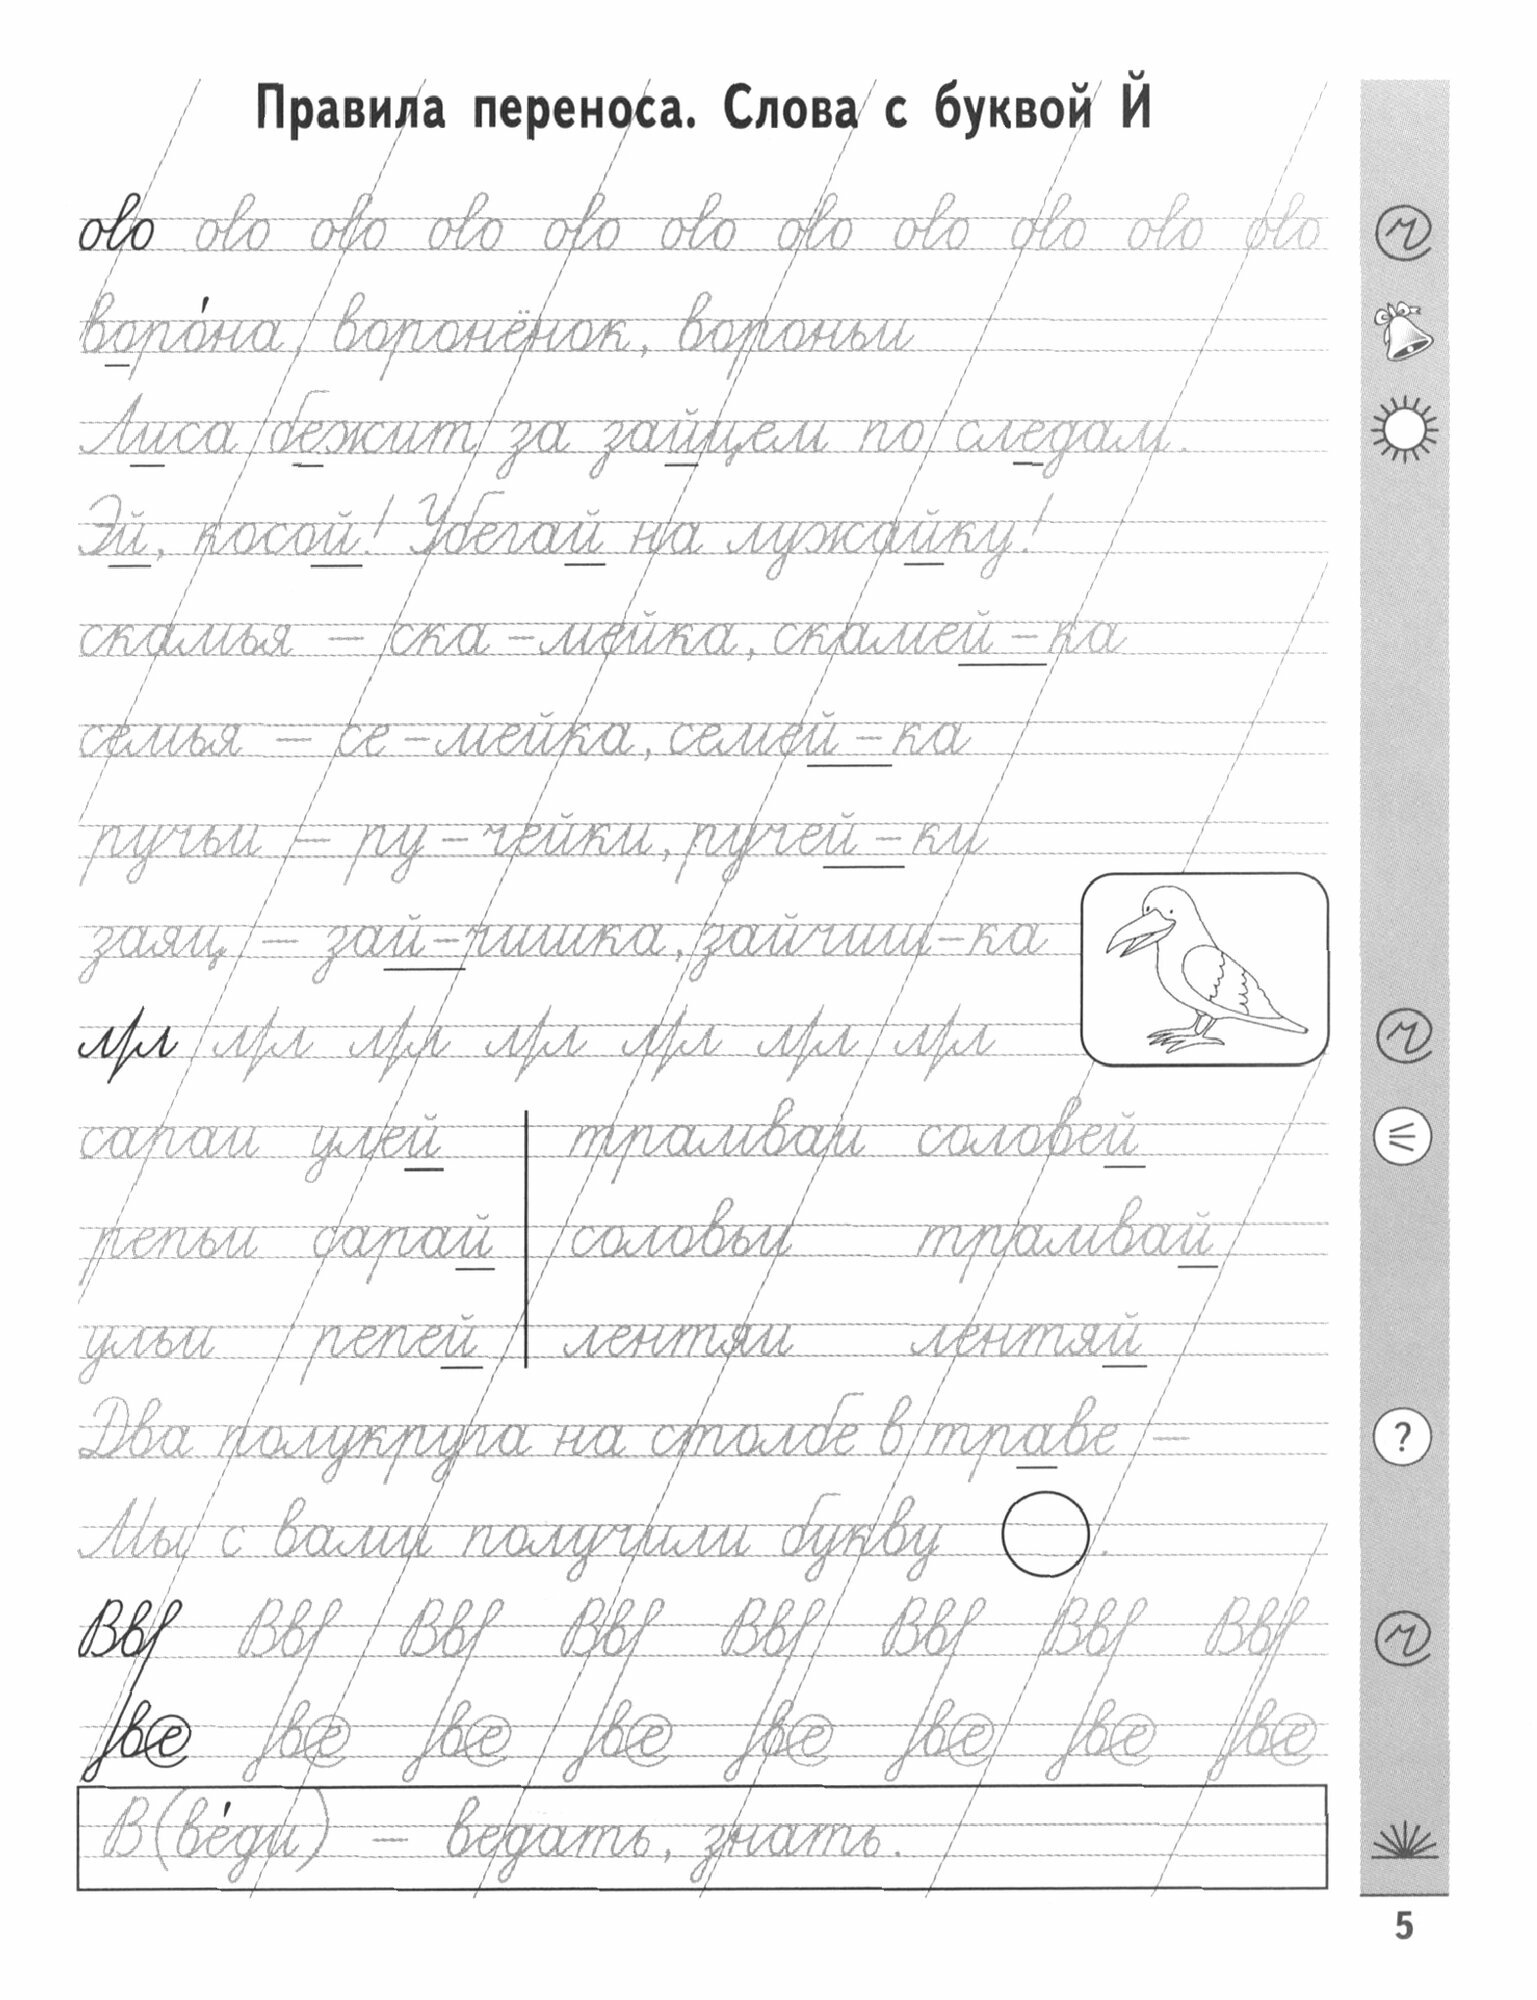 Правила переноса. Слова с буквой Й
ово ово ово ово ово ово ово ово ово ово ово
воро́на, воронёнок, вороньи
Лиса бежит за зайцем по следам.
Эй, косой! Убегай на лужайку!
скамья – ска-мейка, скамей-ка
семья – се-мейка, семей-ка
ручьи – ру-чейки, ручей-ки
заяц – зай-чишка, зайчиш-ка
мрл мрл мрл мрл мрл мрл мрл
сараи улей трамваи соловей
репьи сарай соловьи трамвай
ульи репей лентяи лентяй
Два полукруга на столбе в траве –
?
Мы с вами получили букву .
В(ве́ди) – ведать, знать.
5